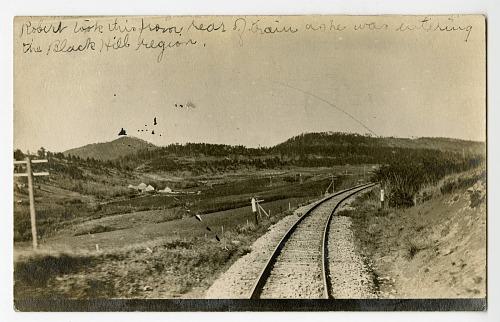 Robert took this from rear of train as he was entering
the Black Hill region.